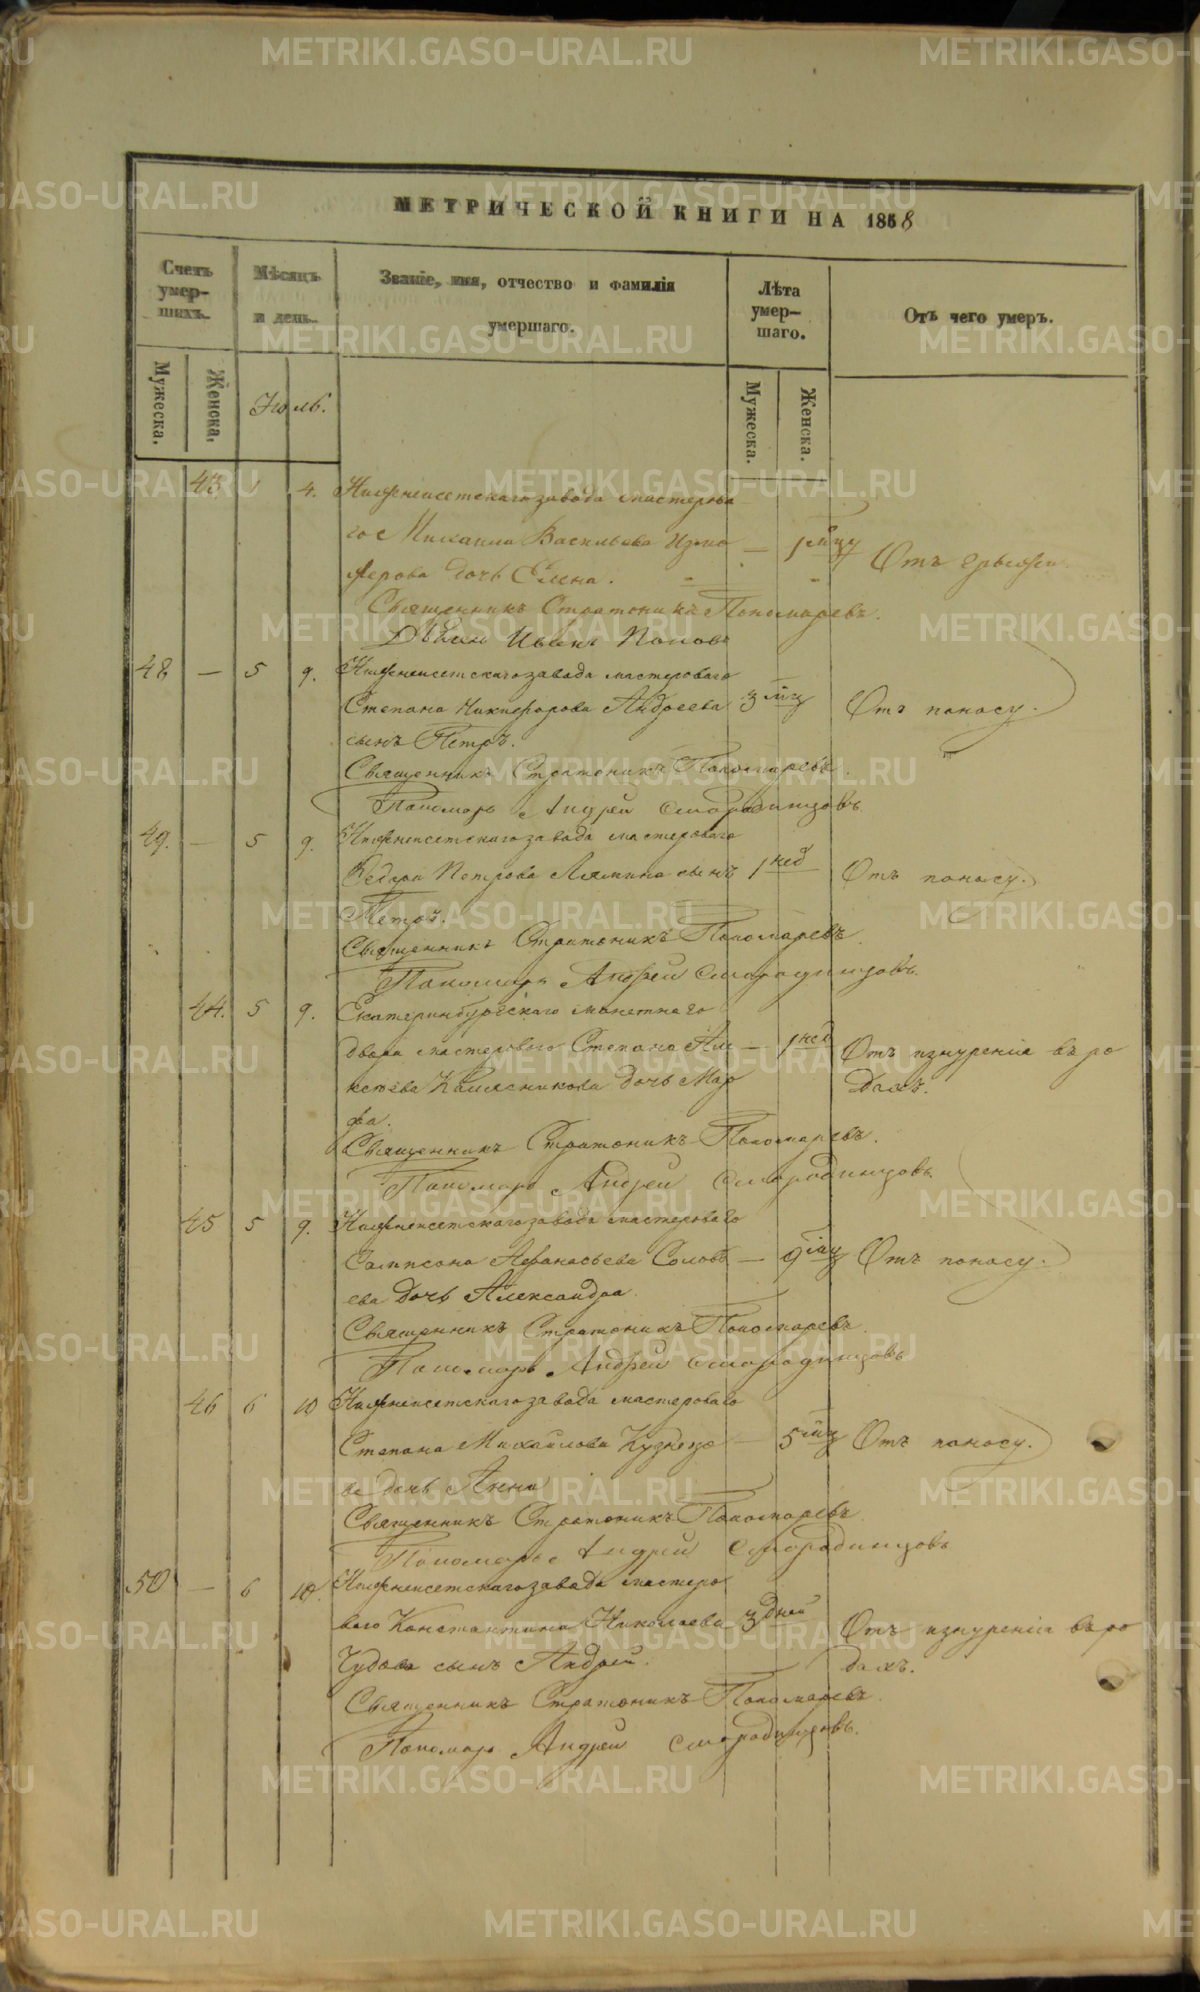 МЕТРИЧЕСКОЙ КНИГИ НА 1858
Счетъ умер-шихъ.
Мѣсяцъ и день.
Званіе, имя, отчество и фамилія умершаго.
Лѣта умер-шаго.
Отъ чего умеръ.
Мужеска.
Женска.
Іюль.
Мужеска.
Женска.
43 1 4. Нижнеисетскаго завода мастерова
го Михаила Васильева — 1 Отъ грыжи
дочь Елена.
Священникъ Стратоникъ Пономаревъ.
Иванъ Поповъ
48 — 5 9. Нижнеисетскаго завода мастероваго
Степана Никифорова Андреева 3 Отъ поносу.
сынъ Петръ.
Священникъ Стратоникъ Пономаревъ.
Пономарь Андрей Смородинцовъ
49. — 5 9. Нижнеисетскаго завода мастероваго
Федора Петрова Лямина сынъ 1 нед Отъ поносу.
Петръ.
Священникъ Стратоникъ Пономаревъ.
Пономарь Андрей Смородинцовъ.
44. 5 9. Екатеринбургскаго монетнаго
двора мастероваго Степана Але — 1 нед Отъ изнуренія въ ро
ксѣева дочь Мар дахъ.
фа.
Священникъ Стратоникъ Пономаревъ.
Пономарь Андрей Смородинцовъ.
45 5 9. Нижнеисетскаго завода мастероваго
Сампсона Афанасьева Соловь — 9 Отъ поносу.
ева дочь Александра.
Священникъ Стратоникъ Пономаревъ.
Пономарь Андрей Смородинцовъ
46 6 10 Нижнеисетскаго завода мастероваго
Степана Михайлова Кузнецо — 5 Отъ поносу.
ва дочь Анна
Священникъ Стратоникъ Пономаревъ.
Пономарь Андрей Смородинцовъ
50 — 6 10. Нижнеисетскаго завода мастеро
ваго Константина Николаева 3 дней Отъ изнуренія въ ро
Чудова сынъ Андрей. дахъ.
Священникъ Стратоникъ Пономаревъ.
Пономарь Андрей Смородинцовъ.
METRIKI.GASO-URAL.RU